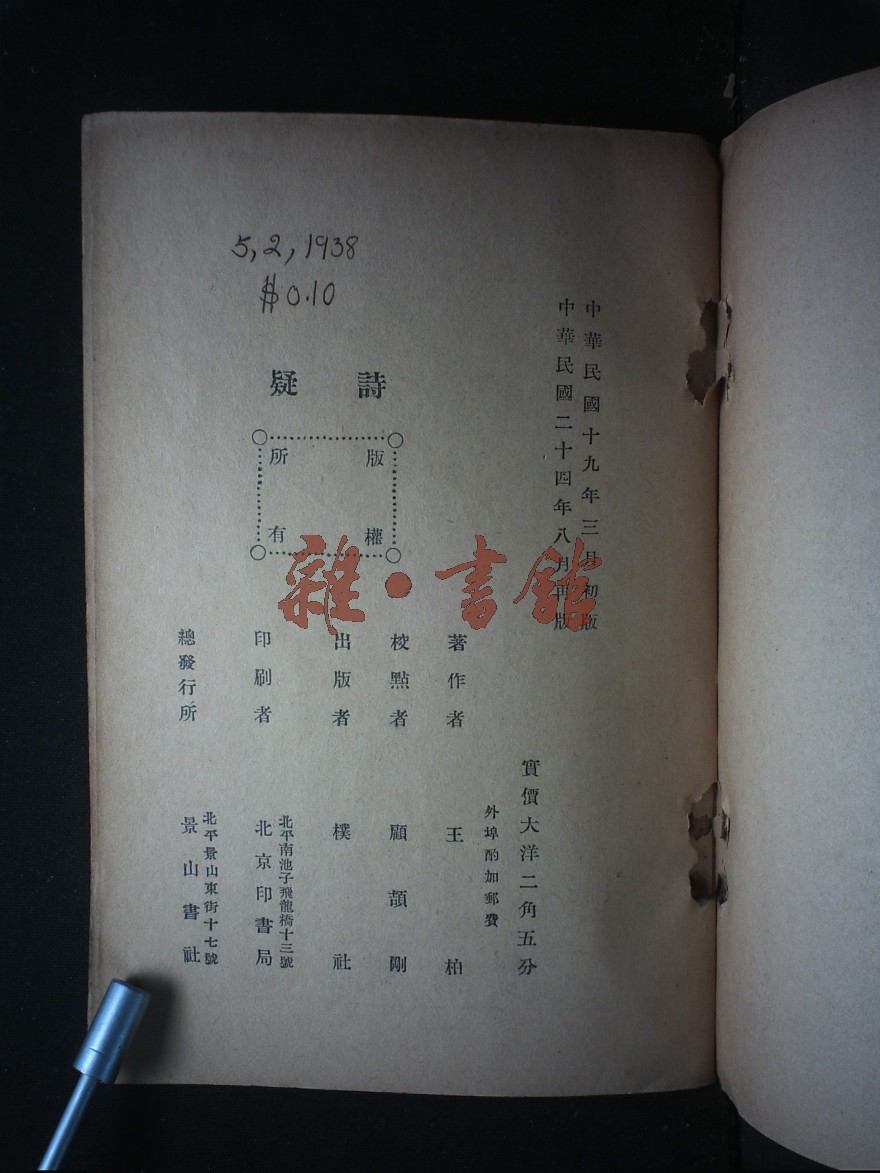 5,2,1938
$0.10
中華民國十九年三月初版
中華民國二十四年八月再版
詩疑
版權
所有
雜·書館
實價大洋二角五分
外埠酌加郵費
著作者 王柏
校點者 顧頡剛
出版者 樸社
印刷者 北平南池子飛龍橋十三號
北京印書局
總發行所 北平景山東街十七號
景山書社